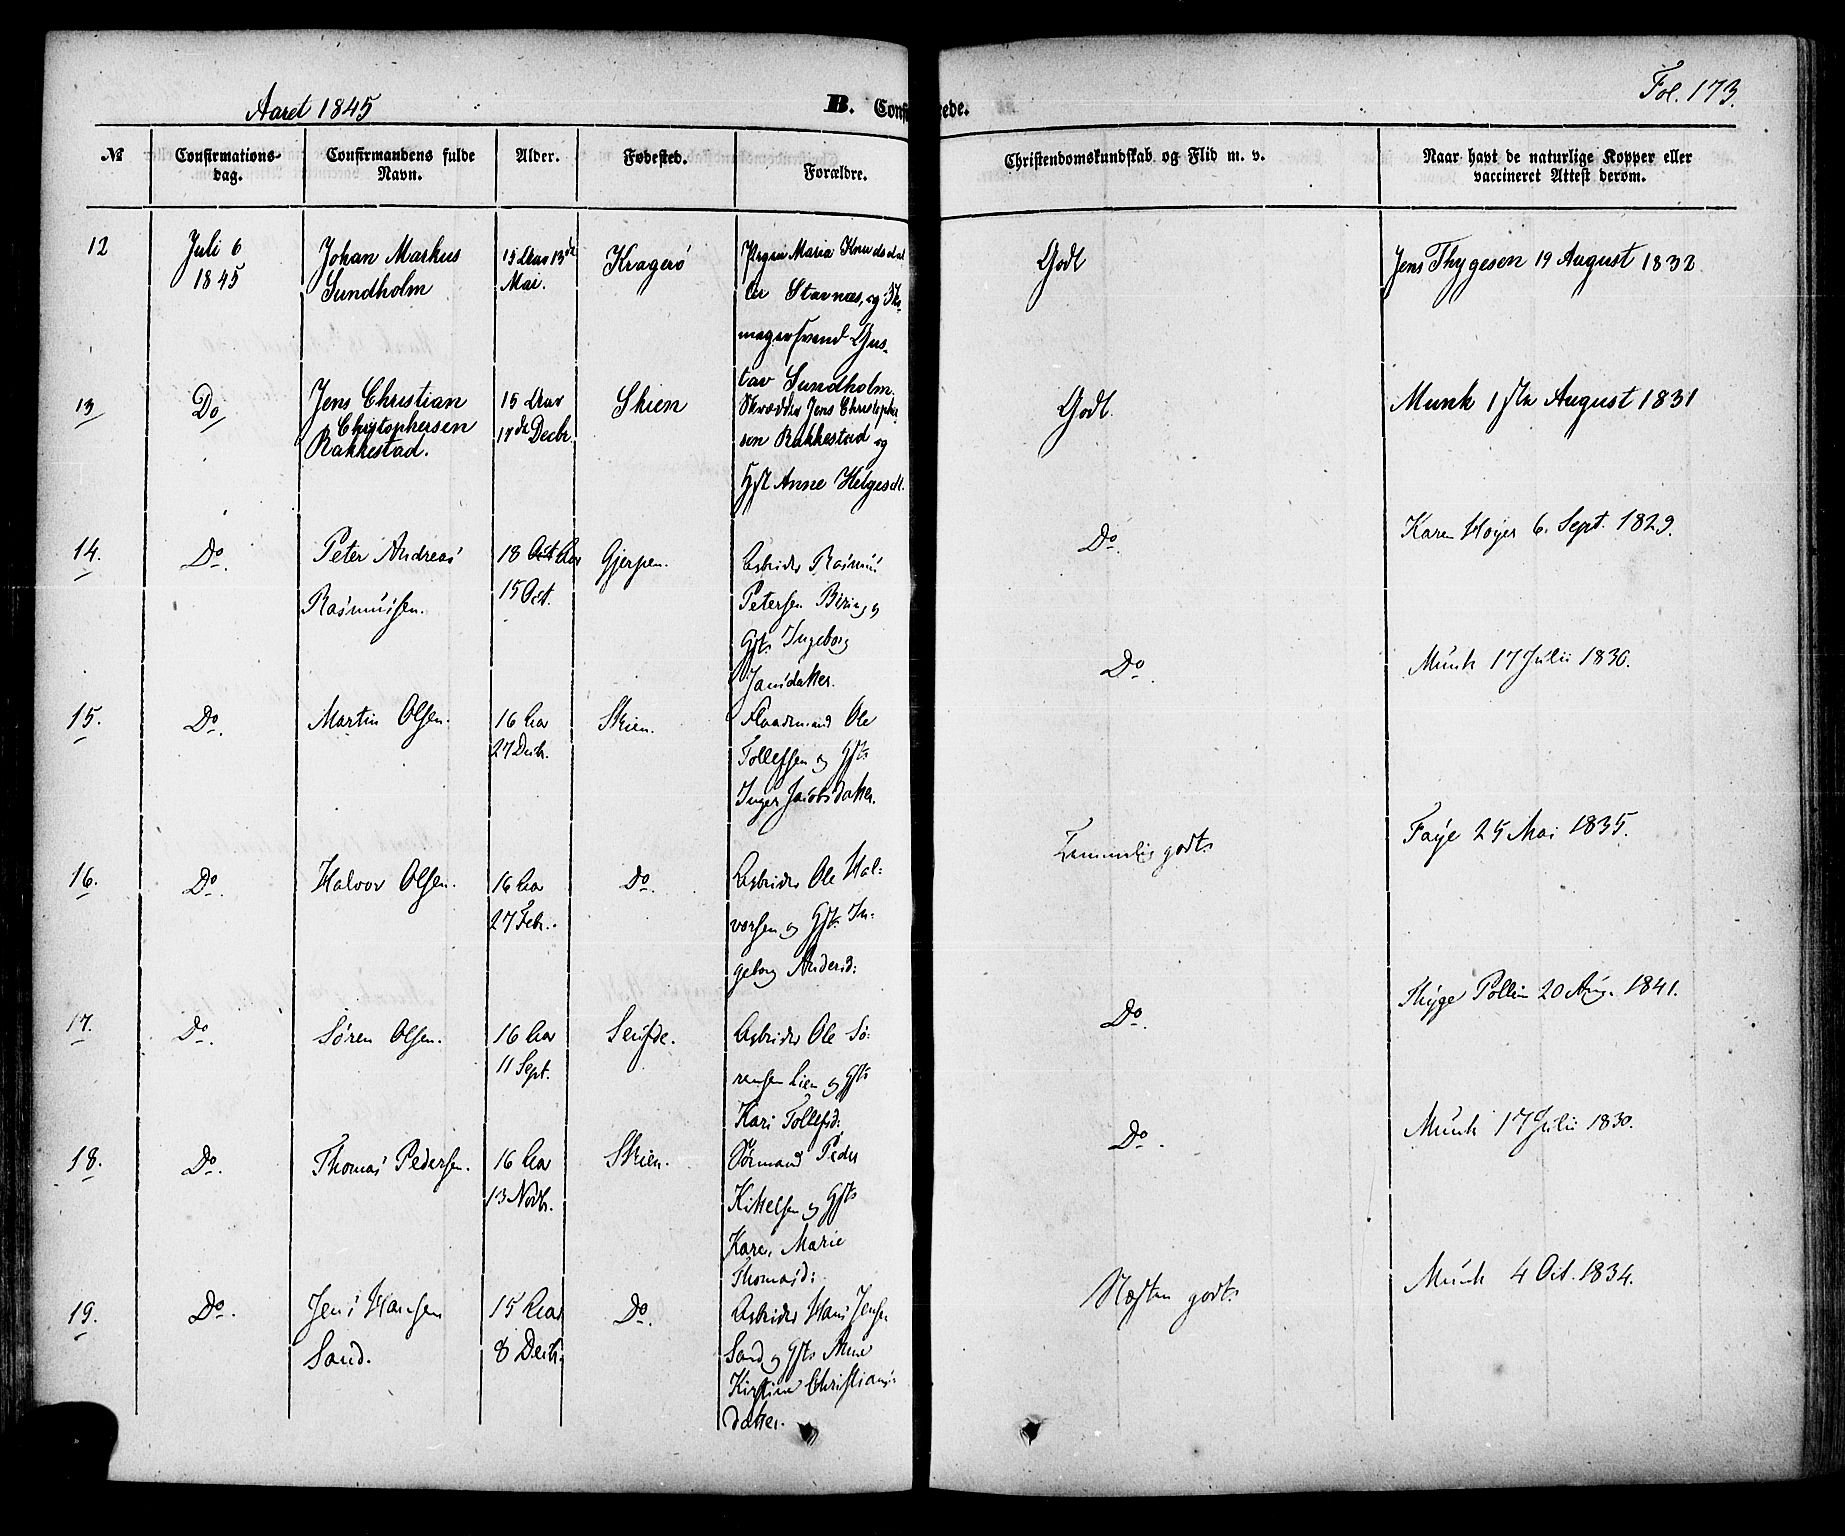 Aaret 1845
B. Conf rede.
Fol. 173.
№
Confirmations-
dag.
Confirmandens fulde
Navn.
Alder.
Fødested.
Forældre.
Christendomskundskab og Flid m. v.
Naar havt de naturlige Kopper eller
vaccineret Attest derom.
12
Juli 6
1845
Johan Markus
Sundholm
15 Aar 13de
Mai.
Kragerø
Pigen Maria Knudsdat
ter Stavnæs, og
magersvend Gus-
tav Sundholm.
Godt
Jens Thygesen 19 August 1832
13
Do
Jens Christian
Christophersen
Rakkestad.
15 Aar
17de Decbr.
Skien
Skrædder Jens Christopher
sen Rakkestad og
Hst Anne Helgesdt.
Godt.
Munk August 1831
14.
Do.
Peter Andreas
Rasmussen.
18 Aar
15 Oct.
Gjerpen.
Arbeider Rasmus
Petersen og
Gfts Ingeborg
Jansdatter.
Do.
Karen Høyer 6. Sept. 1829.
15.
Do.
Martin Olsen.
16 Aar
27 Decb.
Skien.
Flaademand Ole
Tollefsen og Gfts
Inger Jacobsdatter.
Do.
Munk 17 Julii 1830.
16.
Do.
Halvor Olsen.
16 Aar
27 Febr.
Do.
Arbeider Ole Hal-
vorsen og Gft. In-
geborg Andersd:
Temmelig godt.
Faye 25 Mai 1835.
17.
Do.
Sören Olsen.
16 Aar
11 Sept.
Seufde.
Arbeider Ole Sö-
rensen Lien og Gfts
Kari Tollefsd:
Do.
Thyge Pollin 20 Aug. 1841.
18.
Do.
Thomas Pedersen.
16 Aar
13 Novb.
Skien.
Sømand Peder
Kittelsen og Gfts
Karen Marie
Thomasd:
Do.
Munk 17 Julii 1830.
19.
Do.
Jens Hansen
Sand.
15 Aar
8 Decb.
Do.
Arbeider Hans Jensen
Sand og Gfts Anne
Kirstine Christians-
datter.
Næsten godt.
Munk 4 Oct. 1834.